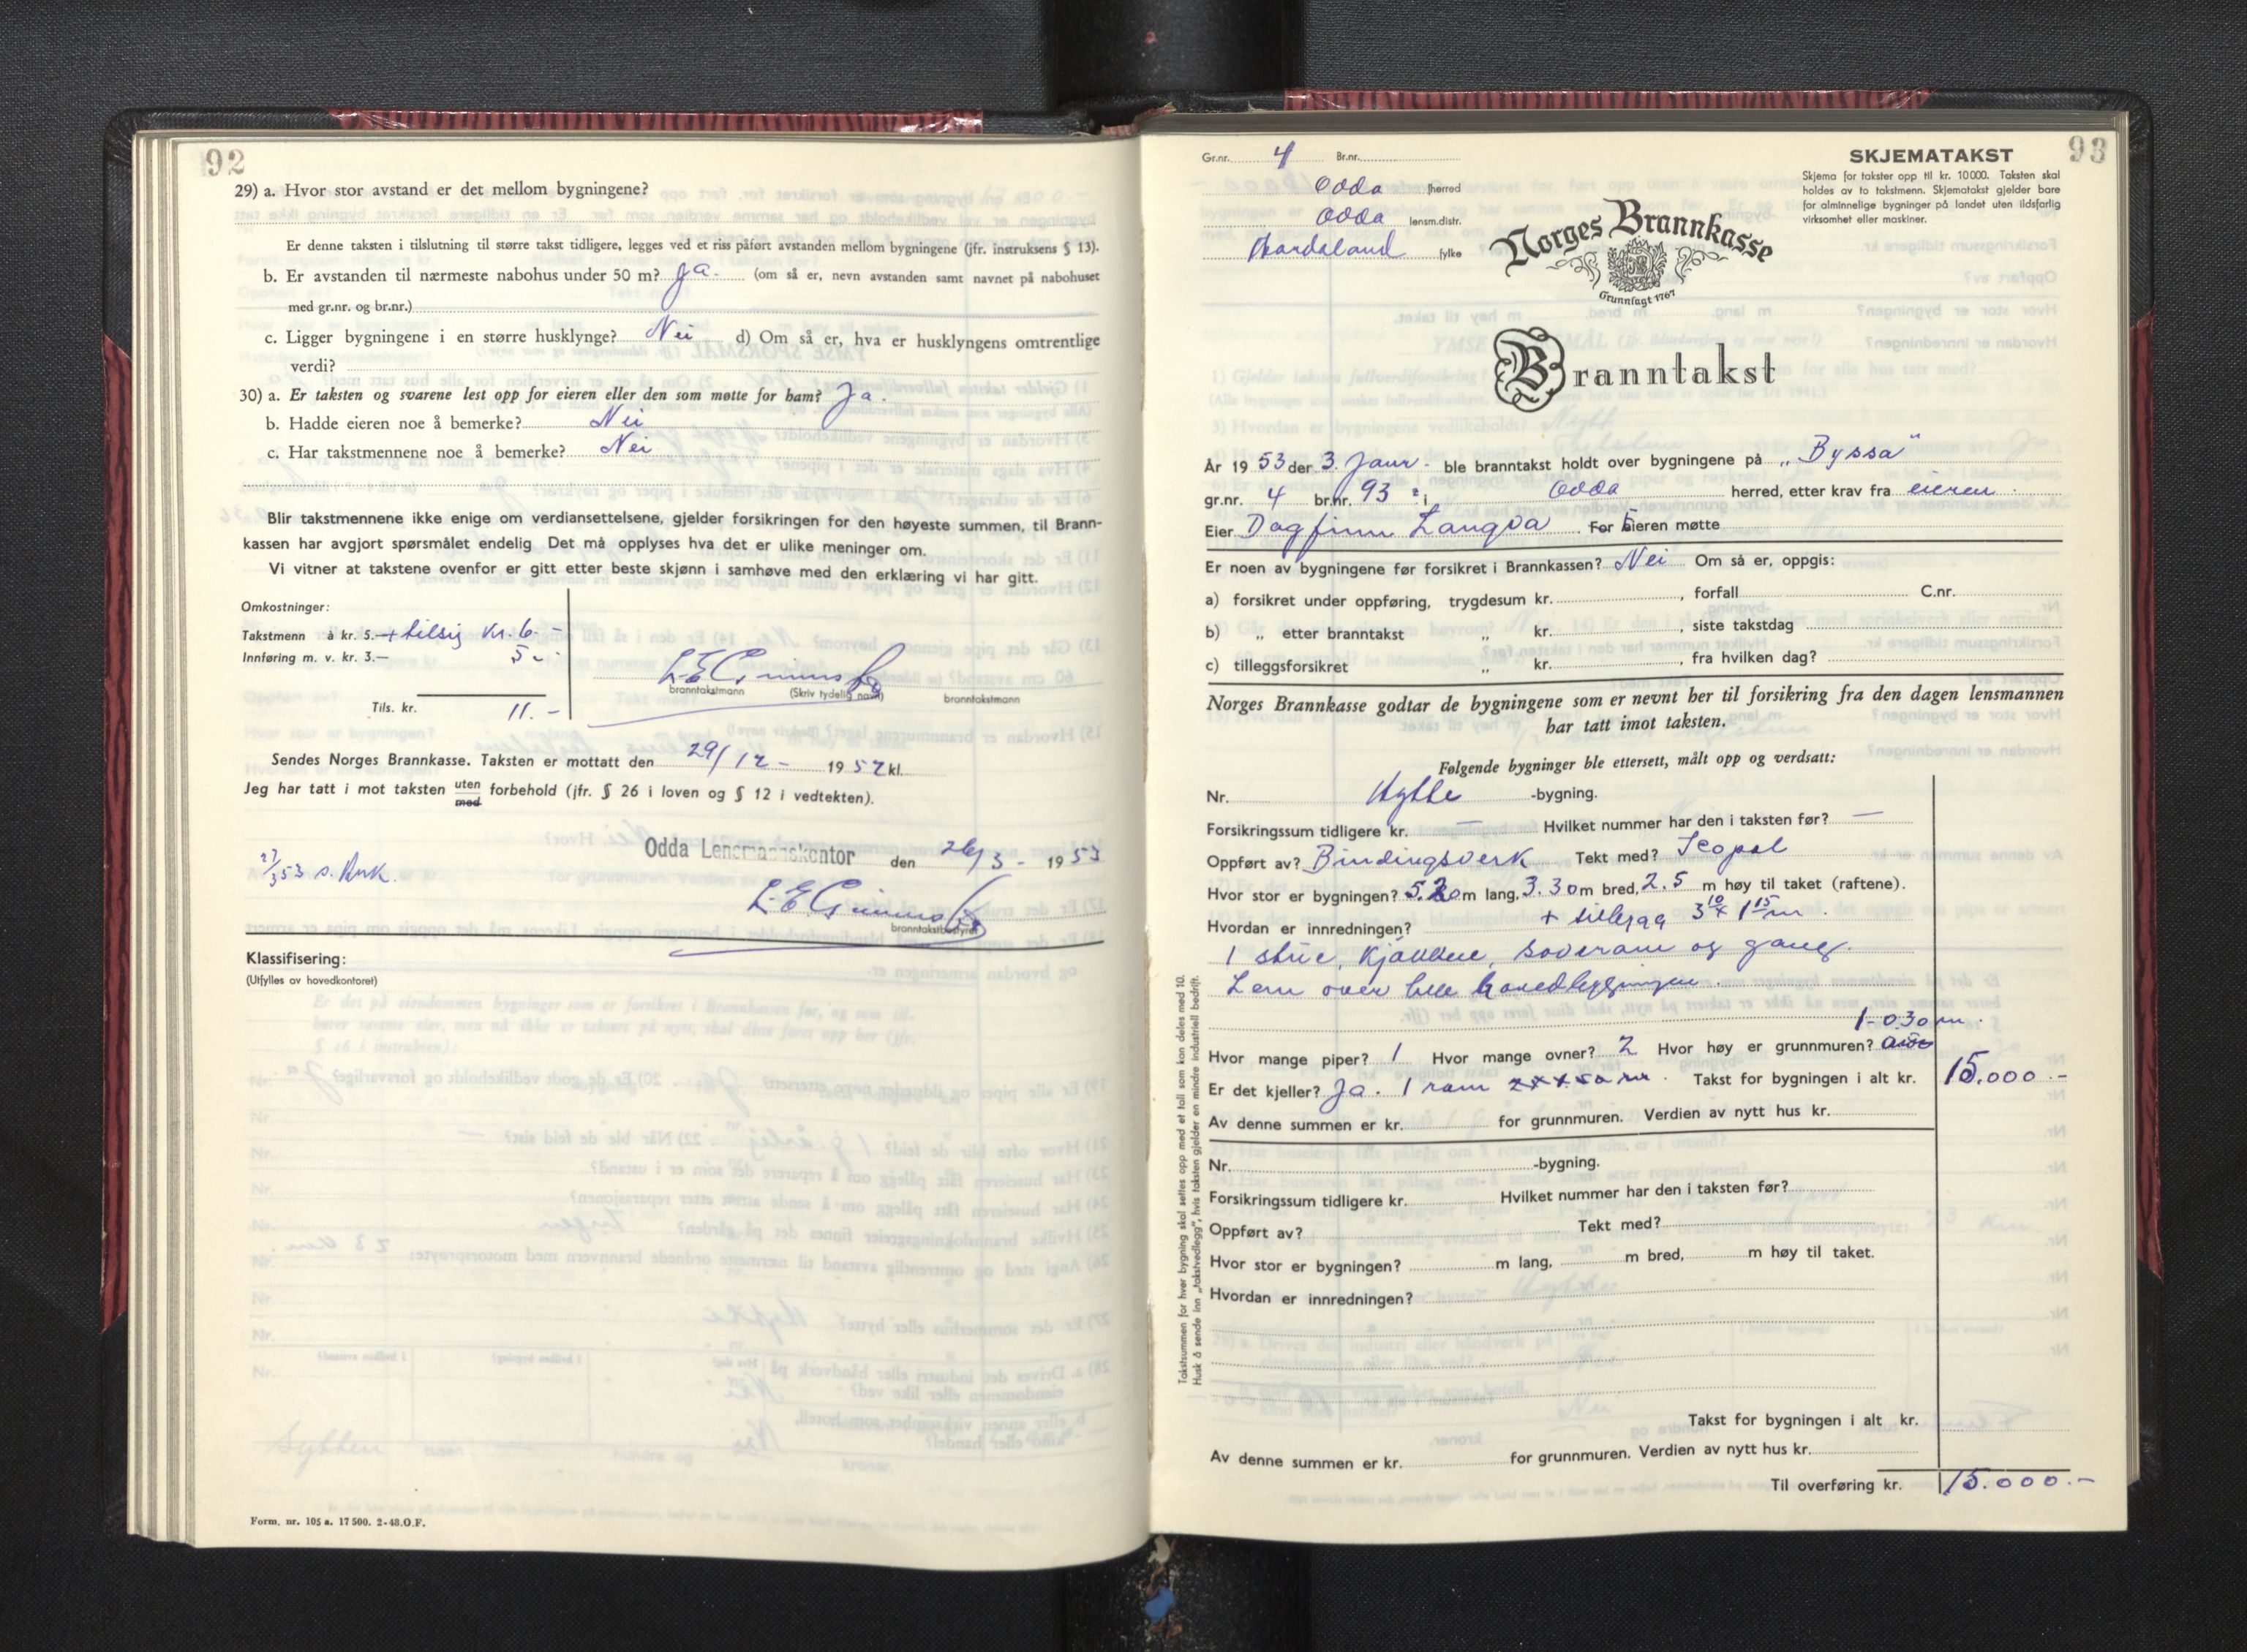 92
29) a. Hvor stor avstand er det mellom bygningene?
Er denne taksten i tilslutning til større takst tidligere, legges ved et riss påført avstanden mellom bygningene (jfr. instruksens § 13).
b. Er avstanden til nærmeste nabohus under 50 m? Ja. (om så er, nevn avstanden samt navnet på nabohuset
med gr.nr. og br.nr.)
c. Ligger bygningene i en større husklynge? Nei d) Om så er, hva er husklyngens omtrentlige
verdi?
30) a. Er taksten og svarene lest opp for eieren eller den som møtte for ham? Ja.
b. Hadde eieren noe å bemerke? Nei
c. Har takstmennene noe å bemerke? Nei
Blir takstmennene ikke enige om verdiansettelsene, gjelder forsikringen for den høyeste summen, til Brann-
kassen har avgjort spørsmålet endelig Det må opplyses hva det er ulike meninger om.
Vi vitner at takstene ovenfor er gitt etter beste skjønn i samhøve med den erklæring vi har gitt.
Omkostninger:
Takstmenn à kr. 5.— + tilsig kr. 6. -
Innføring m. v. kr. 3.— 5. -
branntakstmann (Skriv tydelig navn) branntakstmann
Tils. kr. 11. -
Sendes Norges Brannkasse. Taksten er mottatt den 29/12 - 1952 kl.
Jeg har tatt i mot taksten uten med forbehold (jfr. § 26 i loven og § 12 i vedtekten).
27/3 53 s. Bruk.
Odda Lensmannskontor den 26/3 - 1953
branntakstbestyrer
Klassifisering:
(Utfylles av hovedkontoret)
Form. nr. 105 a. 17 500. 2-48.O.F.
93
Gr.nr. 4 Br.nr.
Odda herred
Odda lensm.distr.
Hordaland fylke
SKJEMATAKST
Skjema for takster opp til kr. 10000. Taksten skal
holdes av to takstmenn. Skjematakst gjelder bare
for alminnelige bygninger på landet uten ildsfarlig
virksomhet eller maskiner.
Norges Brannkasse
Grunnlagt 1767
Branntakst
År 1953 der 3. Janr. ble branntakst holdt over bygningene på „Byssa"
gr.nr. 4 br.nr. 93 ? i Odda herred, etter krav fra eieren.
Eier Dagfinn Langva For Eieren møtte
Er noen av bygningene før forsikret i Brannkassen? Nei Om så er, oppgis:
a) forsikret under oppføring, trygdesum kr. , forfall C.nr.
b) „ etter branntakst „ kr. , siste takstdag
c) tilleggsforsikret „ kr. , fra hvilken dag?
Norges Brannkasse godtar de bygningene som er nevnt her til forsikring fra den dagen lensmannen
har tatt imot taksten.
Følgende bygninger ble ettersett, målt opp og verdsatt:
Nr. Hytte -bygning.
Forsikringssum tidligere kr. — Hvilket nummer har den i taksten før? —
Oppført av? Bindingsverk Tekt med? Icopal
Hvor stor er bygningen? 5.20 m lang, 3.30 m bred, 2.5 m høy til taket (raftene).
Hvordan er innredningen? + tillegg 3 10 x 1 15 m.
1 stue, kjøkken, soverom og gang.
Lem over hele hovedbygningen.
1-0.30 m.
Hvor mange piper? 1 Hvor mange ovner? 2 Hvor høy er grunnmuren?
Er det kjeller? Ja. 1 rom Takst for bygningen i alt kr. 15.000.-
Av denne summen er kr. for grunnmuren. Verdien av nytt hus kr.
Nr. -bygning.
Forsikringssum tidligere kr. Hvilket nummer har den i taksten før?
Oppført av? Tekt med?
Hvor stor er bygningen? m lang, m bred, m høy til taket.
Hvordan er innredningen?
Takst for bygningen i alt kr.
Av denne summen er kr. for grunnmuren. Verdien av nytt hus kr.
Til overføring kr. 15.000.-
Takstsummen for hver bygning skal settes opp med et tall som kan deles med 10.
Husk å sende inn „takstvedlegg", hvis taksten gjelder en mindre industriell bedrift.